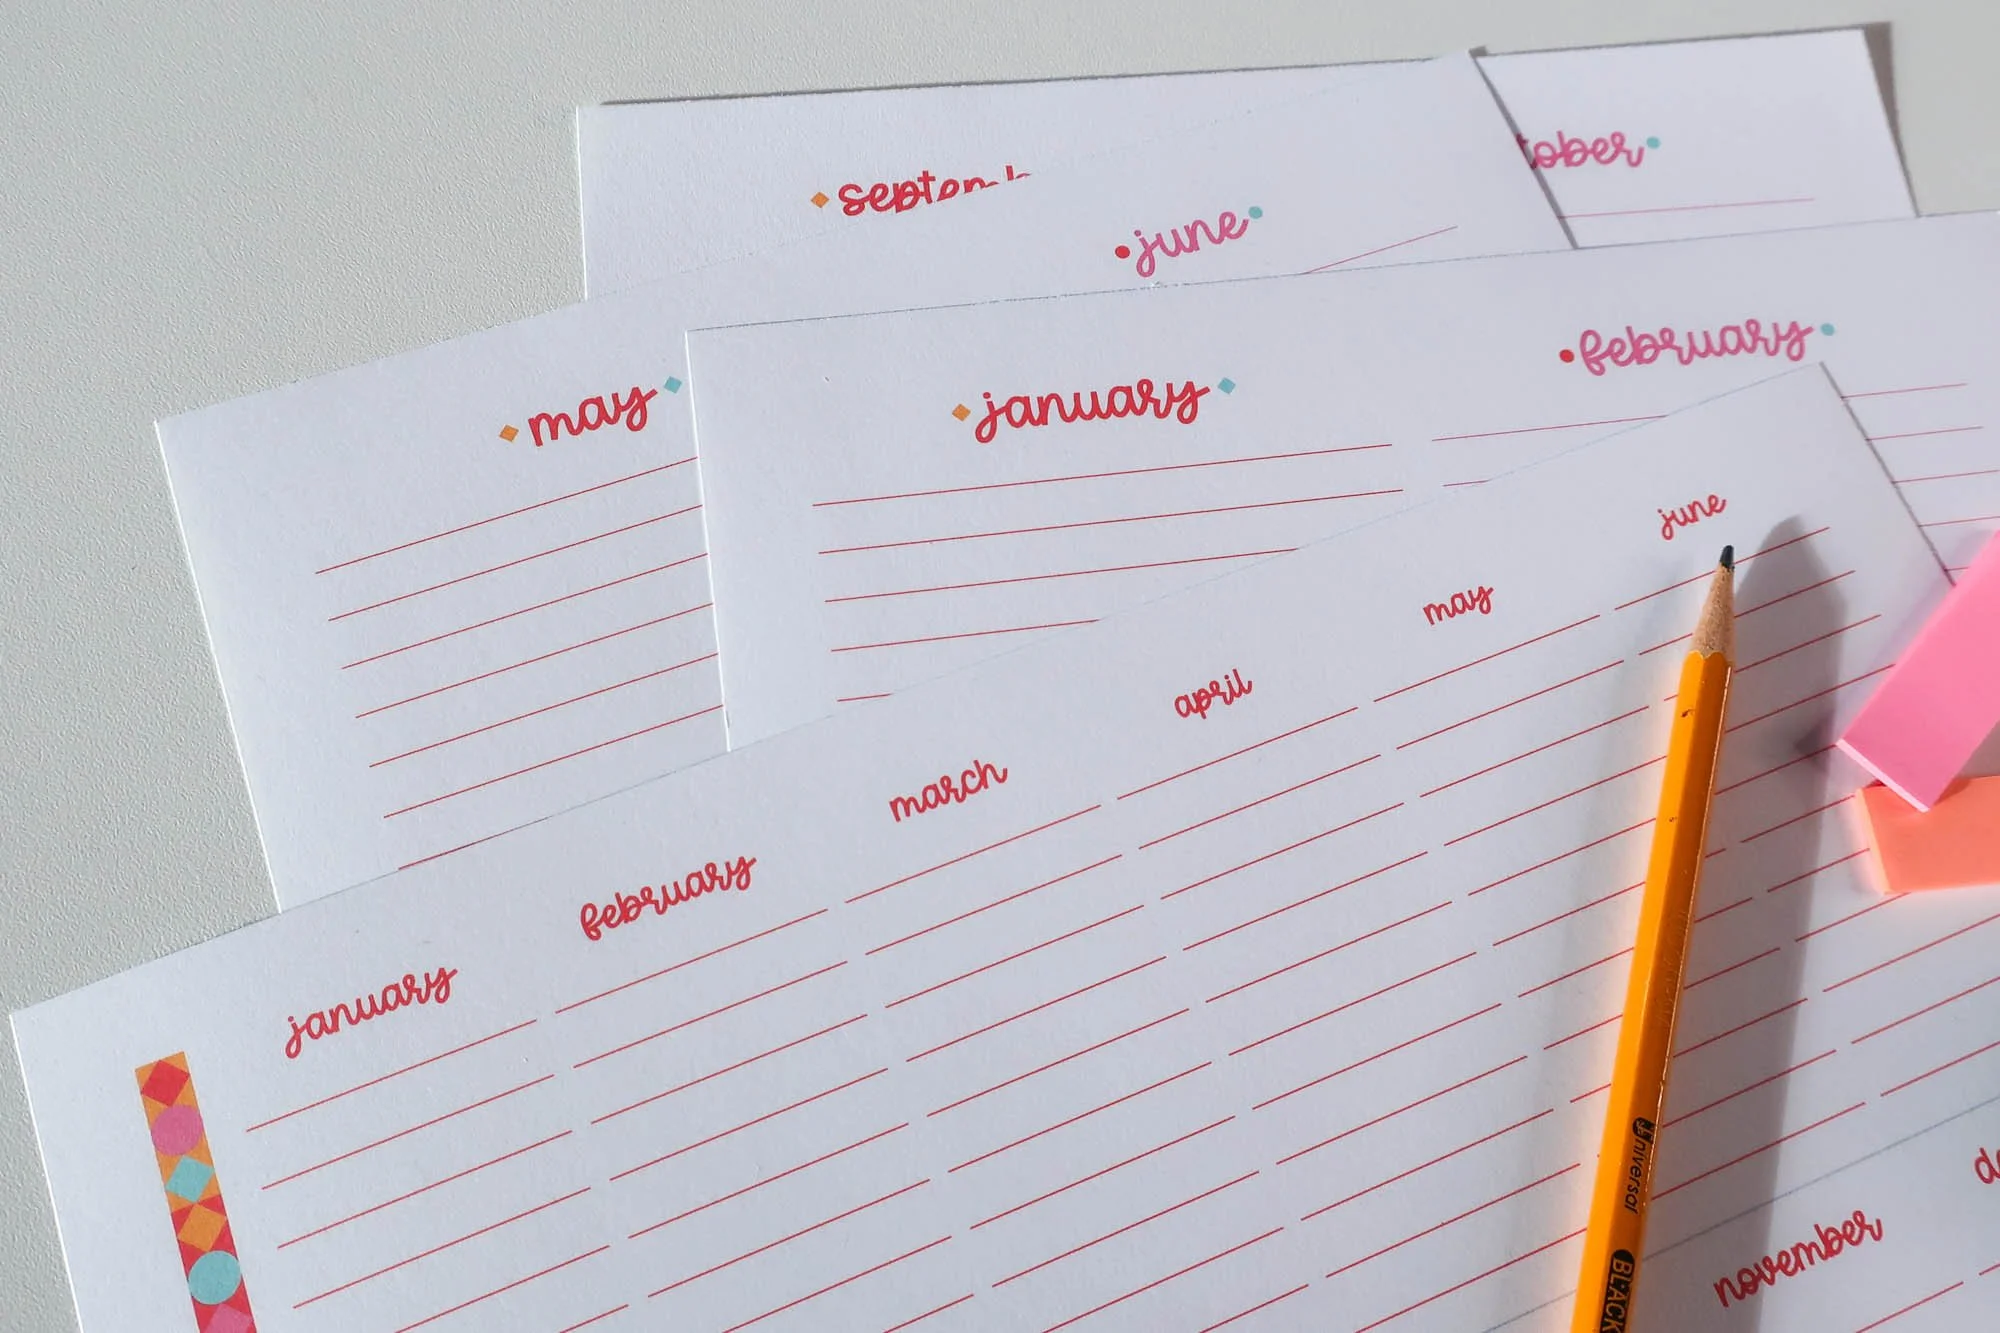 septemb
tober
june
may
january
february
january
february
march
april
may
june
november
de
Universal
BLACK